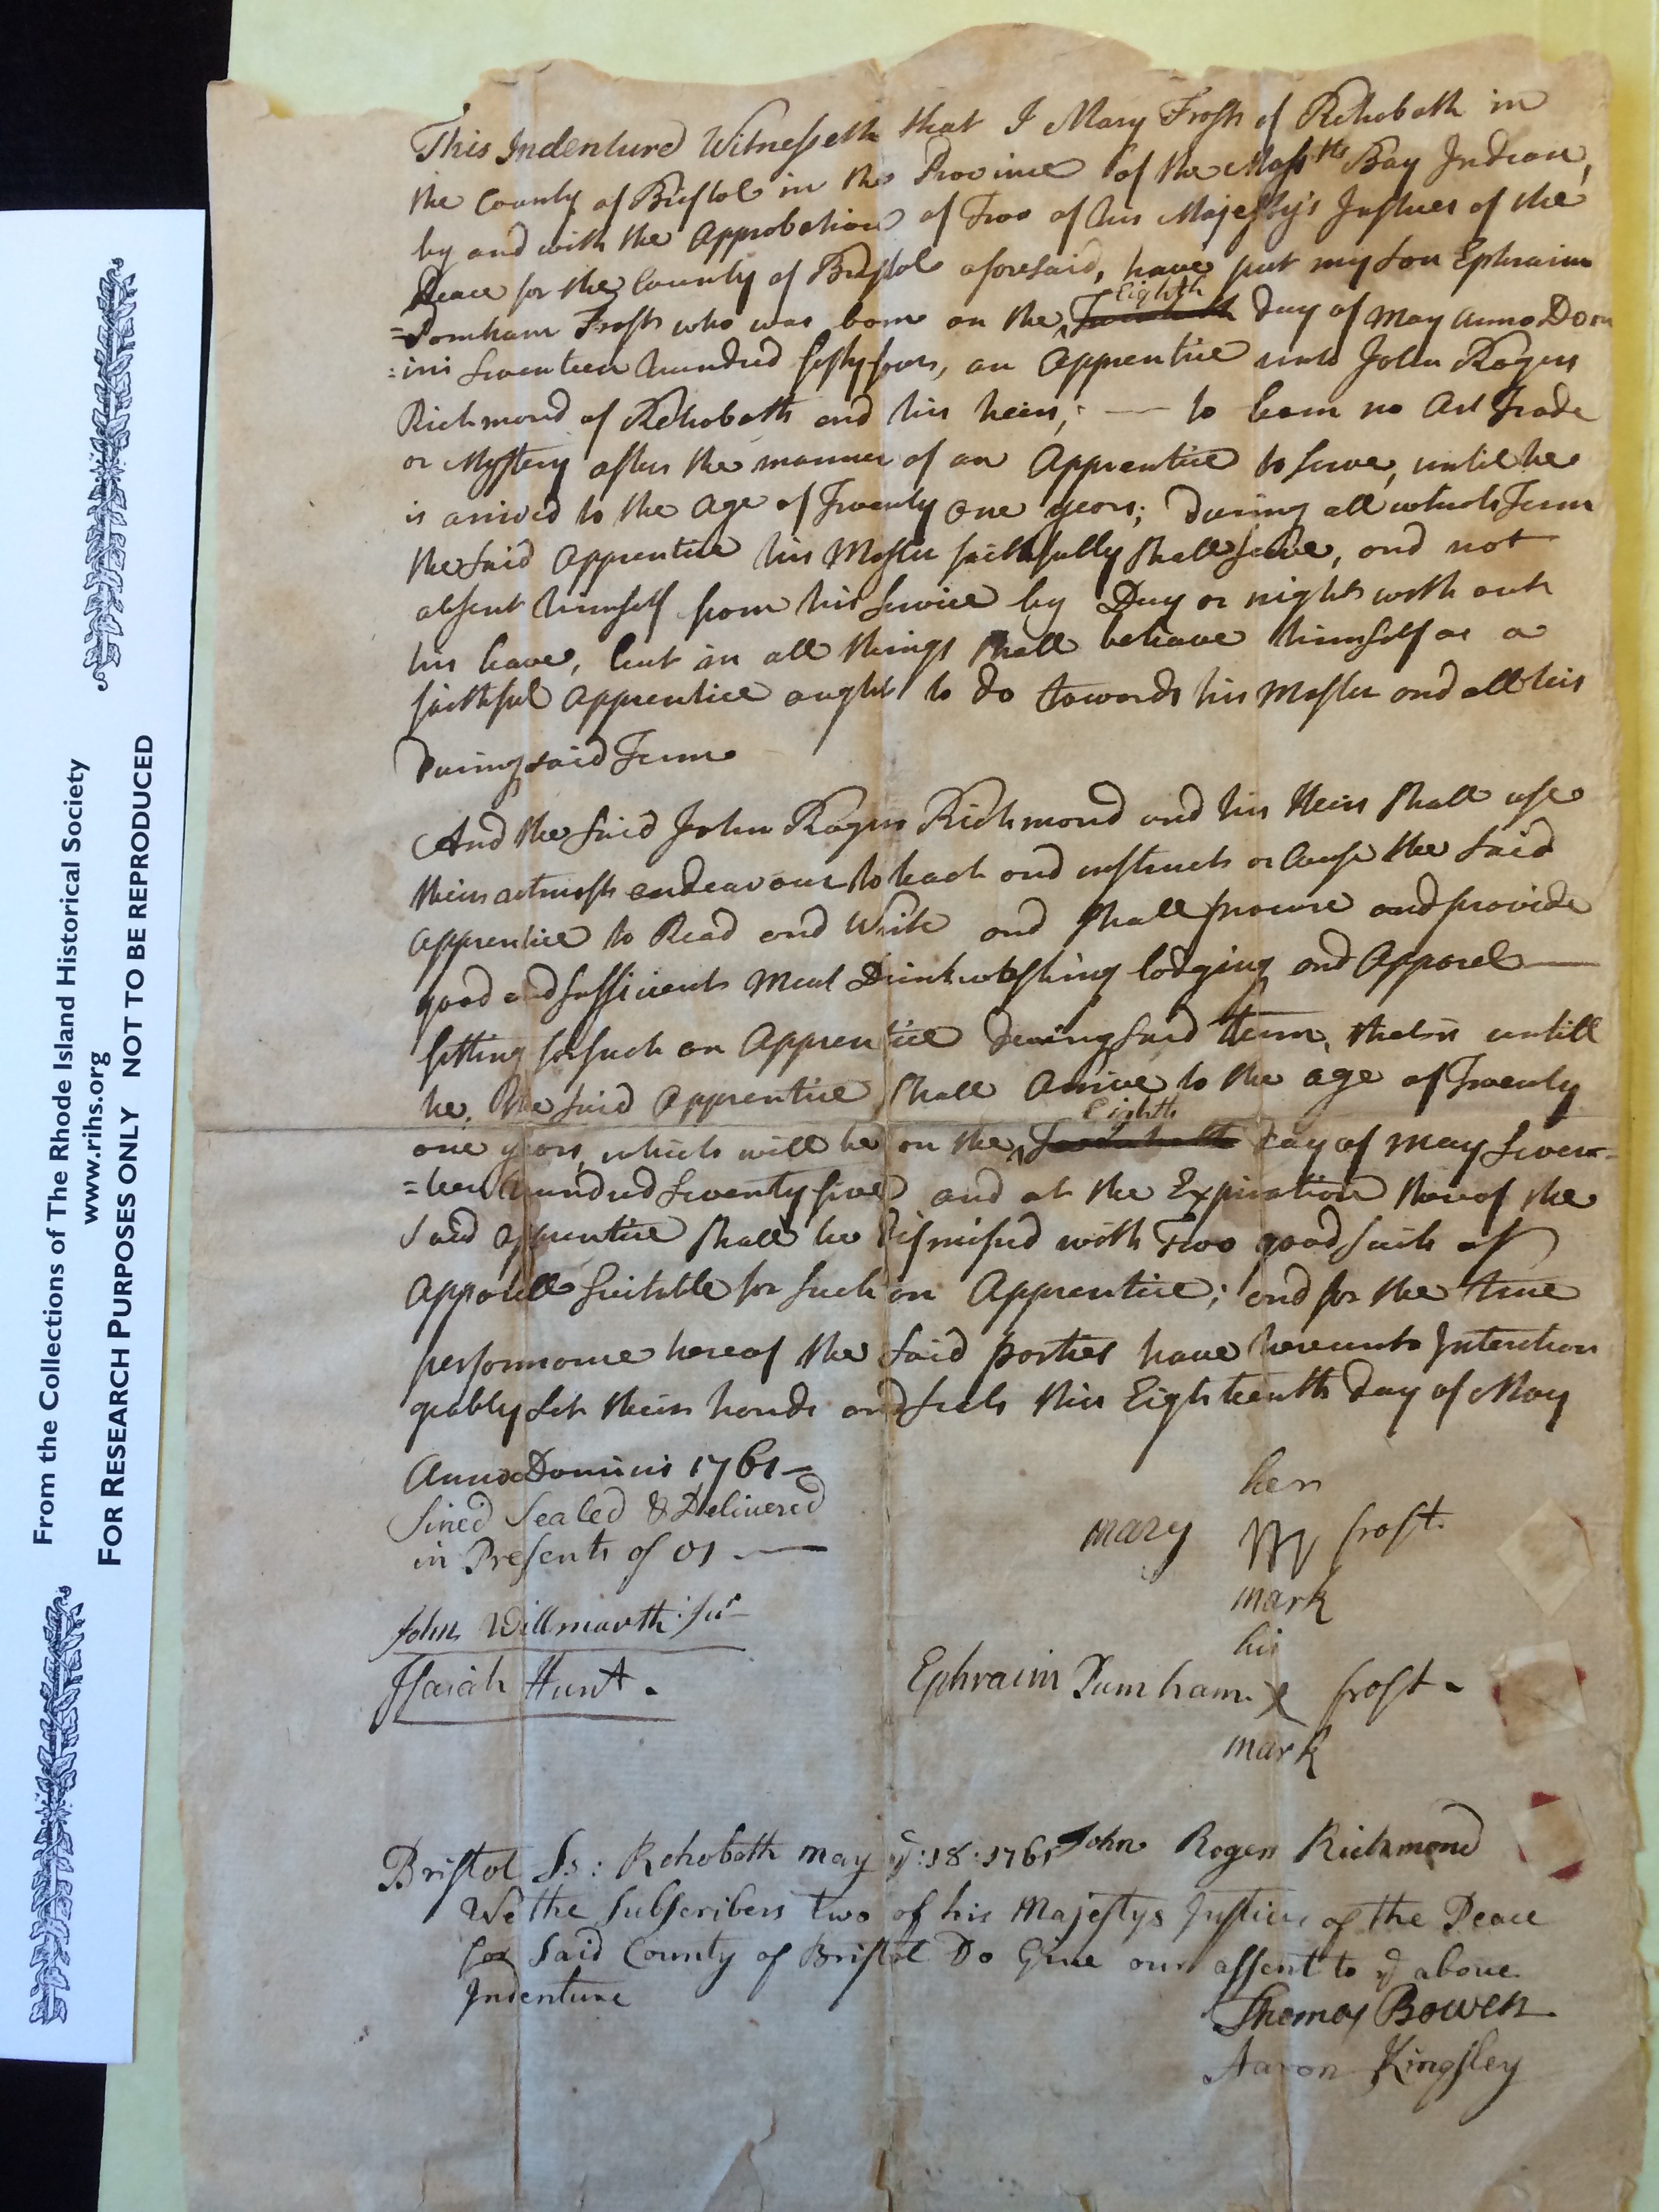 This Indenture Witnesseth that I Mary Frost of Rehoboth in
the County of Bristol in the Province of the Massts Bay Indian,
by and with the Approbation of Two of his Majesty's Justices of the
Peace for the County of Bristol aforesaid, have put my son Ephraim
=Pomham Frost who was born on the Eighth day of May Anno Dom
=ini Seventeen hundred fifty four, an Apprentice unto John Rogers
Richmond of Rehoboth and his heirs; — to learn no Art Trade
or Mystery after the manner of an Apprentice to serve, until he
is arrived to the Age of Twenty One years; During all which Term
the said Apprentice his Master faithfully shall serve, and not
absent himself from his service by Day or night with out
his leave, but in all things shall behave himself as a
faithful Apprentice ought to do towards his Master and all his
During said Term
And the said John Rogers Richmond and his Heirs shall use
their utmost endeavour to teach and instruct or Cause the said
Apprentice to Read and Write and shall procure and provide
good and sufficient Meat Drink washing lodging and Apparel —
fitting for such an Apprentice During said term, that is untill
he the said Apprentice shall Arrive to the age of Twenty
one years, which will be on the Eighth day of May Seven=
=teen hundred Seventy five and at the Expiration thereof the
said Apprentice shall be Dismissed with Two good suits of
Apparell suitable for such an Apprentice; and for the true
performance hereof the said parties have hereunto Interchan
geably set their hands and seals this Eighteenth day of May
Anno Domini 1761 =
Sined Sealed & Delivered
in Presents of us —
her
mary frost.
mark
John Willmarth Jur
his
Isaiah Hunt.
Ephraim Pumham X frost.
mark
John Rogers Richmond
Bristol Ss: Rehoboth may ye:18:1761
We the Subscribers two of his Majestys Justices of the Peace
for Said County of Bristol Do Give our assent to ye above
Indenture
Thomas Bowen
Aaron Kingsley
From the Collections of The Rhode Island Historical Society
www.rihs.org
FOR RESEARCH PURPOSES ONLY NOT TO BE REPRODUCED